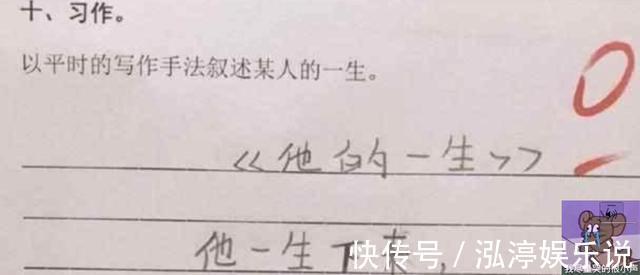 十、习作。
以平时的写作手法叙述某人的一生。
0
《他的一生》
他一生下
快传号/泓渟娱乐说